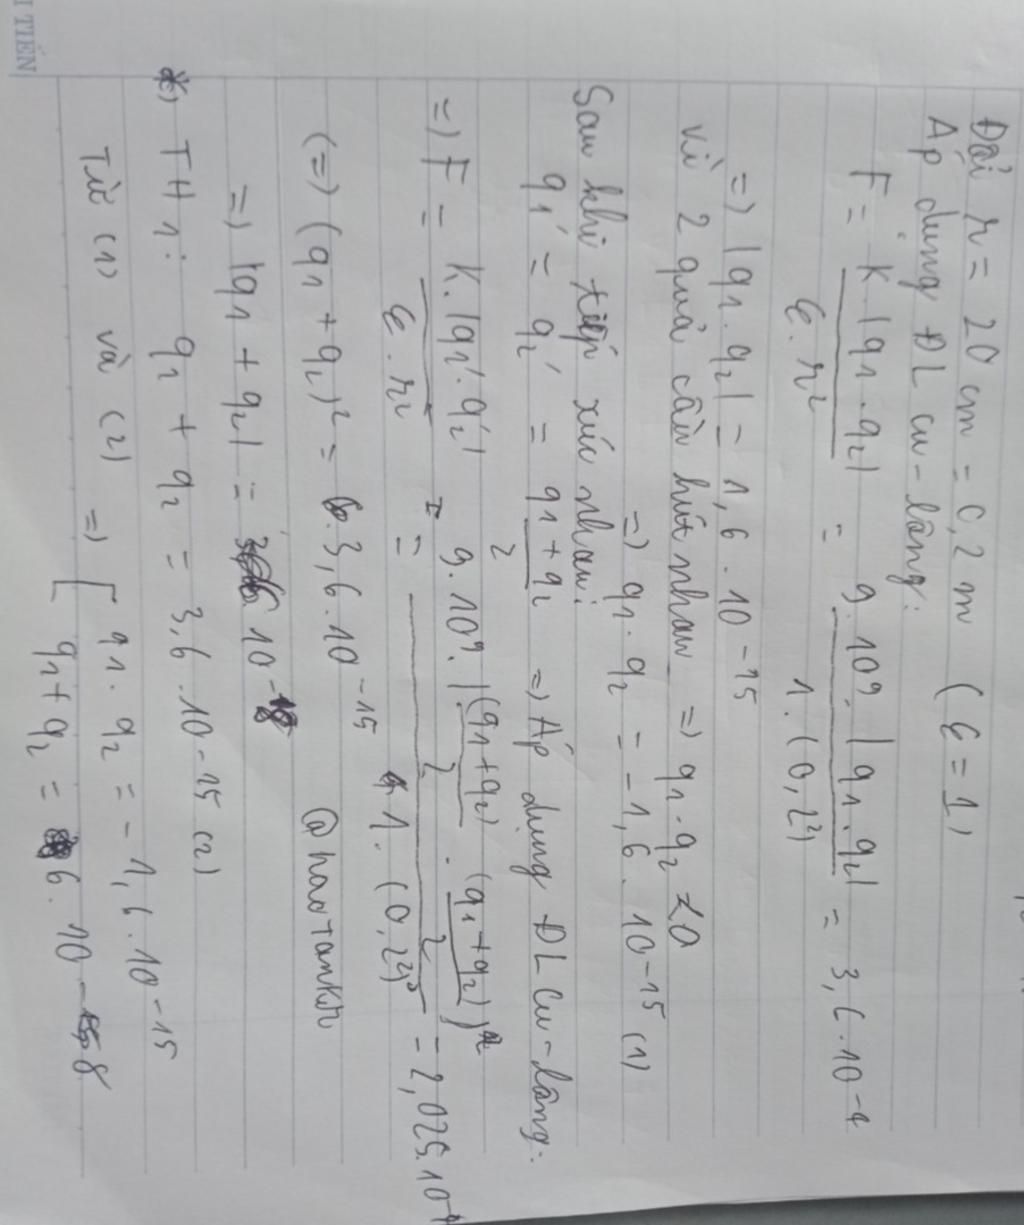 I TIẾN
Đổi r = 20 cm = 0,2 m (ε = 1)
Áp dụng ĐL cu-lông:
F = K.|q1.q2| / ε.r² = 9.10⁹.|q1.q2| / 1.(0,2²) = 3,6.10⁻⁴
=) |q1.q2| = 1,6.10⁻¹⁵
Vì 2 quả cầu hút nhau =) q1.q2 < 0
=) q1.q2 = -1,6.10⁻¹⁵ (1)
Sau khi tiếp xúc nhau:
q1' = q2' = q1+q2 / 2 =) Áp dụng ĐL Cu-lông:
=) F = K.|q1'.q2'| / ε.r² = 9.10⁹.|(q1+q2)/2 . (q1+q2)/2| / 1.(0,2²) = 2,025.10⁻⁴
(=) (q1+q2)² = 3,6.10⁻¹⁵
@haotankh
=) |q1+q2| = 6.10⁻⁸
*) TH1: q1 + q2 = 3,6.10⁻¹⁵ (2)
Từ (1) và (2) =) [ q1.q2 = -1,6.10⁻¹⁵
q1+q2 = 6.10⁻⁸